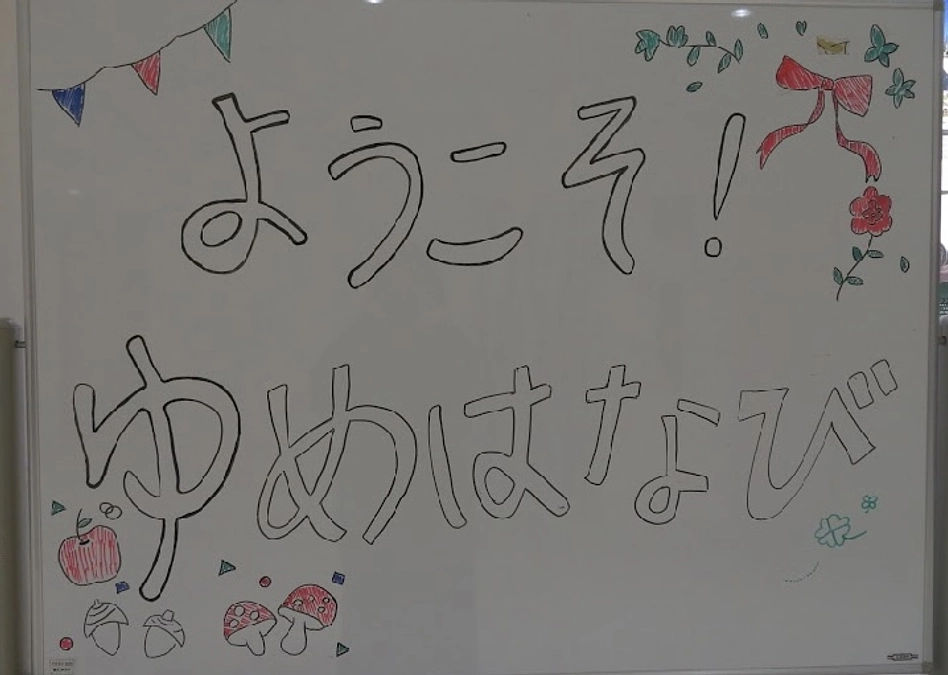 ようこそ!
ゆめはなび